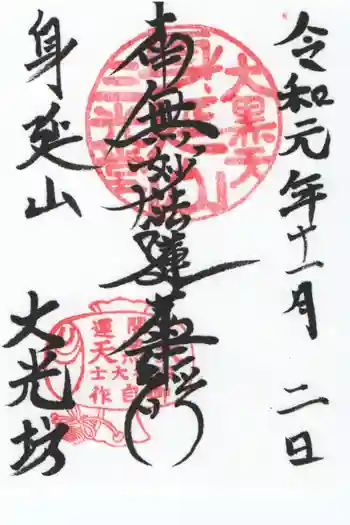 令和元年十一月二日
南無妙法蓮華経
身延山
大光坊
大黒天
身延山
三光堂
開運
大黒天